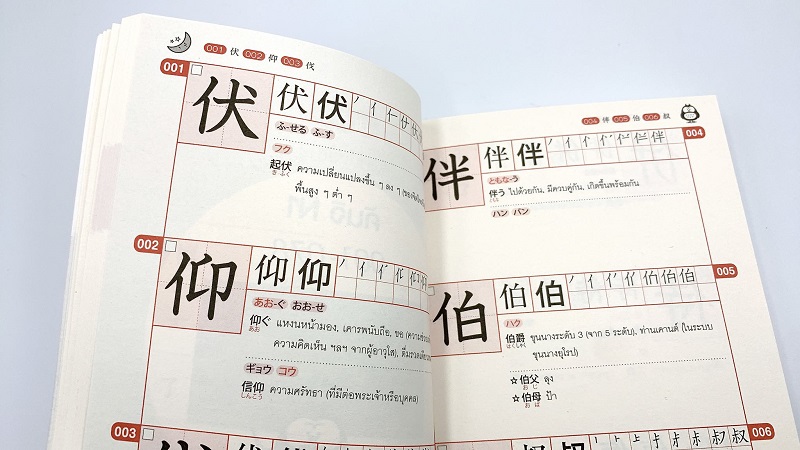 001 伏 002 仰 003 伐
001
伏 伏 伏
ふ-せる ふ-す
フク
起伏 ความเปลี่ยนแปลงขึ้น ๆ ลง ๆ
きふく
พื้นสูง ๆ ต่ำ ๆ
002
仰 仰 仰
あお-ぐ おお-せ
仰ぐ แหงนหน้ามอง, เคารพนับถือ, ขอ
あお
ความคิดเห็น ฯลฯ จากผู้อาวุโส),
ギョウ コウ
信仰 ความศรัทธา (ที่มีต่อพระเจ้าหรือบุคคล)
しんこう
003
004 伴 005 伯 006 叔
004
伴 伴 伴
ともな-う
伴う ไปด้วยกัน, มีควบคู่กัน, เกิดขึ้นพร้อมกัน
ともな
ハン バン
005
伯 伯 伯
ハク
伯爵 ขุนนางระดับ 3 (จาก 5 ระดับ), ท่านเคานต์ (ในระบบ
はくしゃく
ขุนนางยุโรป)
☆伯父 ลุง
おじ
☆伯母 ป้า
おば
006
叔 叔